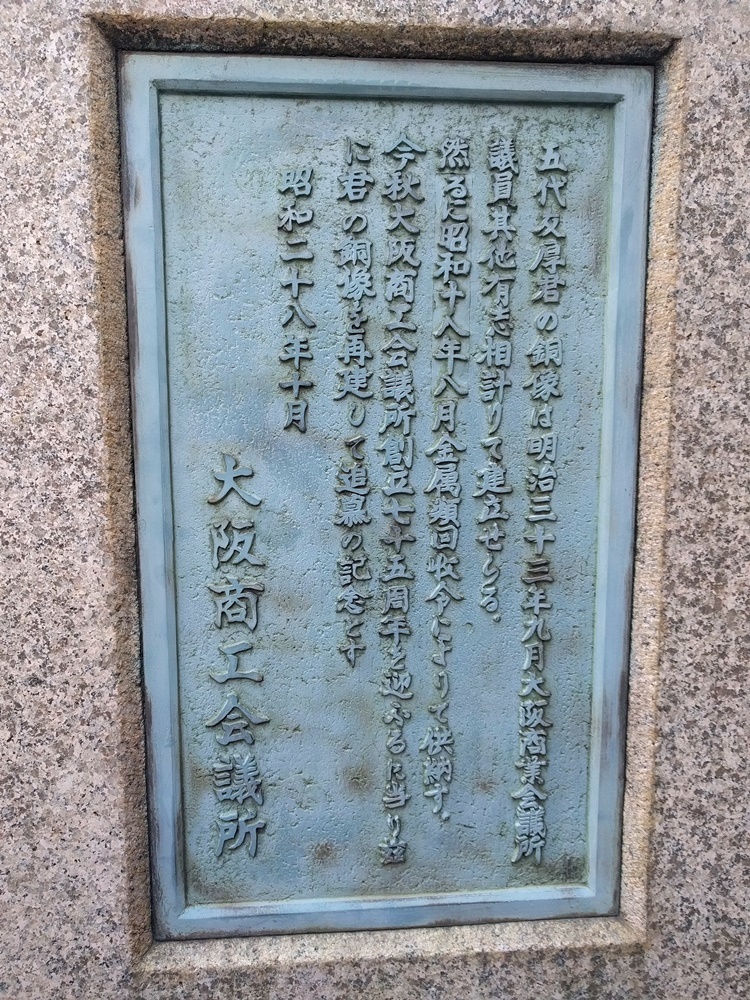 五代友厚君の銅像は明治三十三年九月大阪商業会議所
議員其他有志相計りて建立せしる.
然るに昭和十八年八月金属類回收令によりて供納す.
今秋大阪商工会議所創立七十五周年を迎ふるに当り茲
に君の銅像を再建して追慕の記念とす
昭和二十八年十月
大阪商工会議所